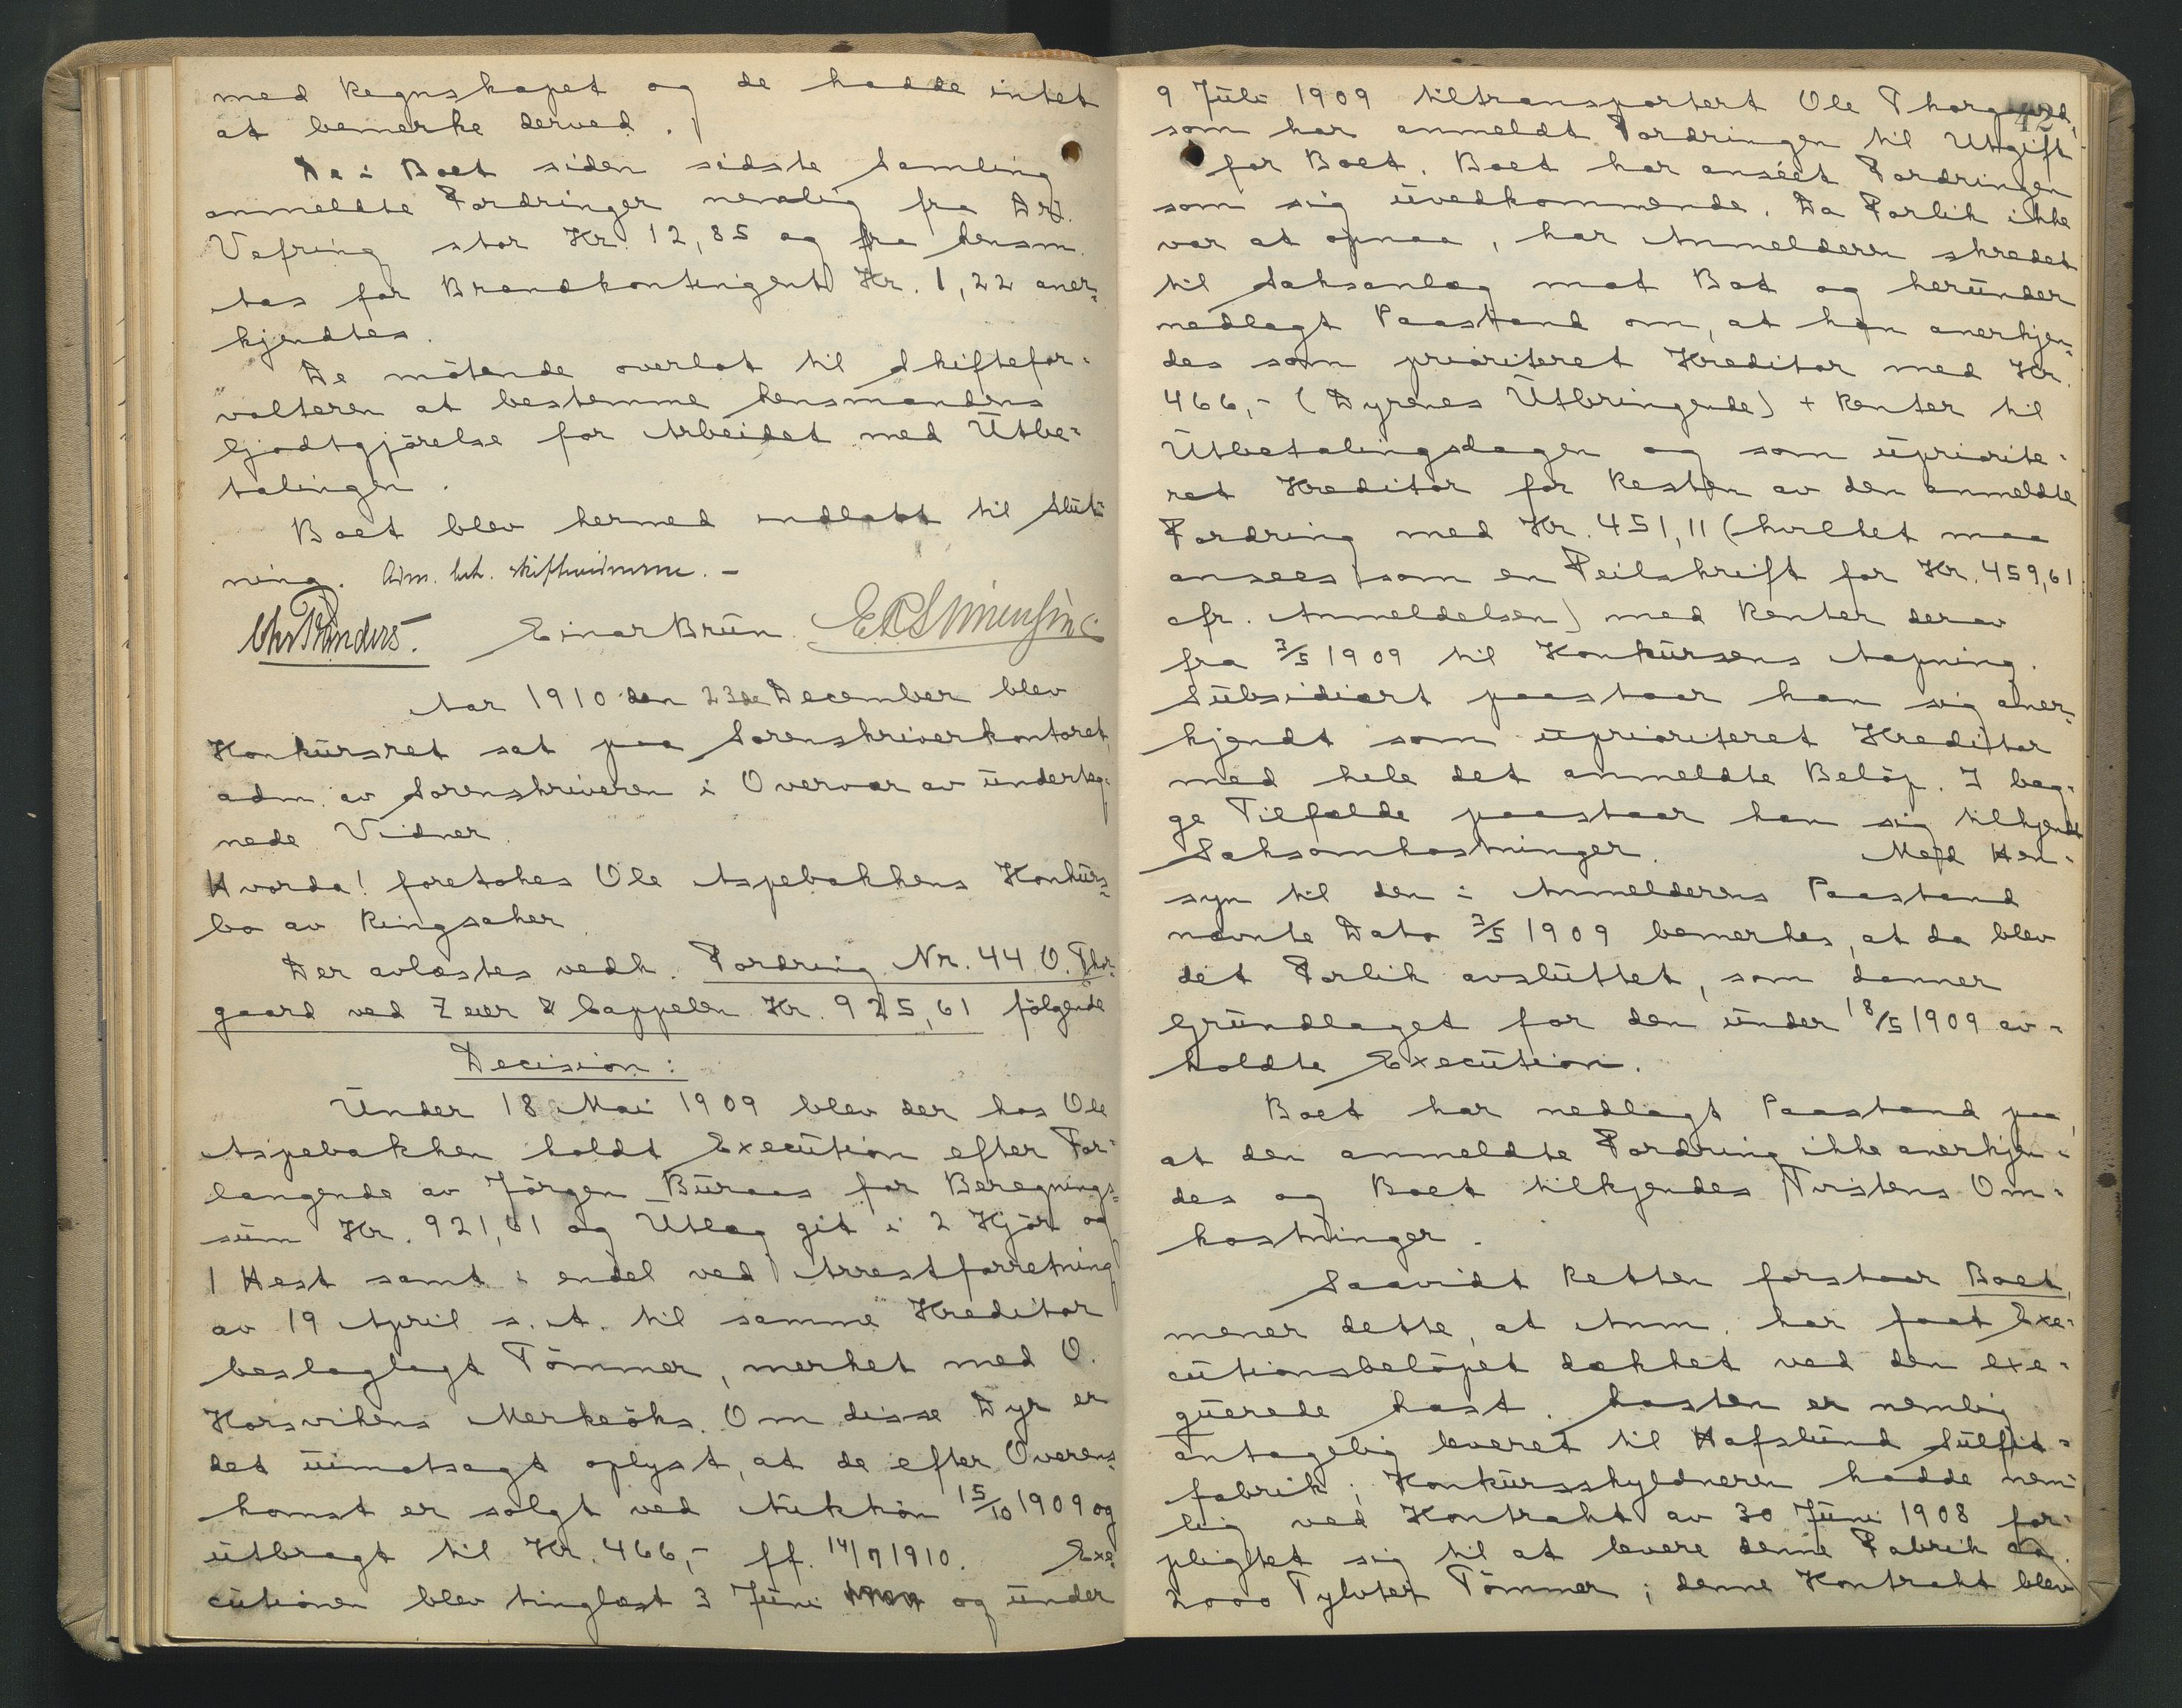 med Regnskapet og de hadde intet
at bemerke derved.
De i Boet siden sidste Samling
anmeldte Fordringer nemlig fra Dr.
Vefring stor Kr. 12,85 og fra Lensm.
tas for Brandkontingent Kr. 1,22 aner-
kjendtes.
De mötende overlot til Skiftefor-
valteren at bestemme Lensmandens
Godtgjörelse for Arbeidet med Utbe-
talingen.
Boet blev hermed indlatt til Slut-
ning. Adm. bet. skiftevidnerne. -
Einar Brun
Aar 1910 den 23de December blev
Konkursret sat paa Sorenskriverkontoret
adm. av Sorenskriveren i Overvær av underteg-
nede Vidner.
Hvorda! foretokes Ole Aspebakkens Konkurs-
bo av Ringsaker
Der avlæstes vedk. Fordring Nr. 44 O. Thor-
gaard ved Zeier & Cappelen Kr. 925,61 fölgende
Decision:
Under 18 Mai 1909 blev der hos Ole
Aspebakken holdt Execution efter For-
langende av Jörgen Buraas for Beregnings-
sum Kr. 921,61 og Utlæg git i 2 Kjör og
1 Hest samt i endel ved Arrestforretning
av 19 April s. A. til samme Kreditor
beslaglagt Tömmer, merket med O.
Korsvikens Merkeöks. Om disse Dyr er
det uimotsagt oplyst, at de efter Overens-
komst er solgt ved Auktion 15/10 1909 og
utbragt til Kr. 466,- ff. 14/7 1910. Exe-
cutionen blev tinglæst 3 Juni og under
42
9 Juli 1909 tiltransportert Ole Thorgaard,
som har anmeldt Fordringen til Utgift
for Boet. Boet har anséet Fordringen
som sig uvedkommende. Da Forlik ikke
var at opnaa, har Anmelderen skredet
til Saksanlæg mot Bot og herunder
nedlagt Paastand om, at han anerkjen-
des som prioriteret Kreditor med Kr.
466,- (Dyrenes Utbringende) + Renter til
Utbetalingsdagen og som upriorite-
ret Kreditor for Resten av den anmeldte
Fordring med Kr. 451,11 (hvilket maa
ansees som en Feilskrift for Kr. 459,61
cfr. Anmeldelsen) med Renter derav
fra 3/5 1909 til Konkursens Aapning.
Subsidiært paastaar han sig aner-
kjendt som uprioriteret Kreditor
med hele det anmeldte Belöp. I beg-
ge Tilfælde paastaar han sig tilkjendt
Saksomkostninger. Med Hen-
syn til den i Anmelderens Paastand
nævnte Dato 3/5 1909 bemerkes, at da blev
det Forlik avsluttet, som danner
Grundlaget for den under 18/5 1909 av-
holdte Execution.
Boet har nedlagt Paastand paa,
at den anmeldte Fordring ikke anerkjen-
des og Boet tilkjendes Tvistens Om-
kostninger.
Saavidt Retten forstaar Boet,
mener dette, at Anm. har faat Exe-
cutionsbelöpet dækket ved den exe-
querede Last. Lasten er nemlig
antagelig leveret til Hafslund Sulfit-
fabrik; Konkursskyldneren hadde nem-
lig ved Kontrakt av 30 Juni 1908 for-
pligtet sig til at levere denne Fabrik ca.
2000 Tylvter Tömmer; denne Kontrakt blev